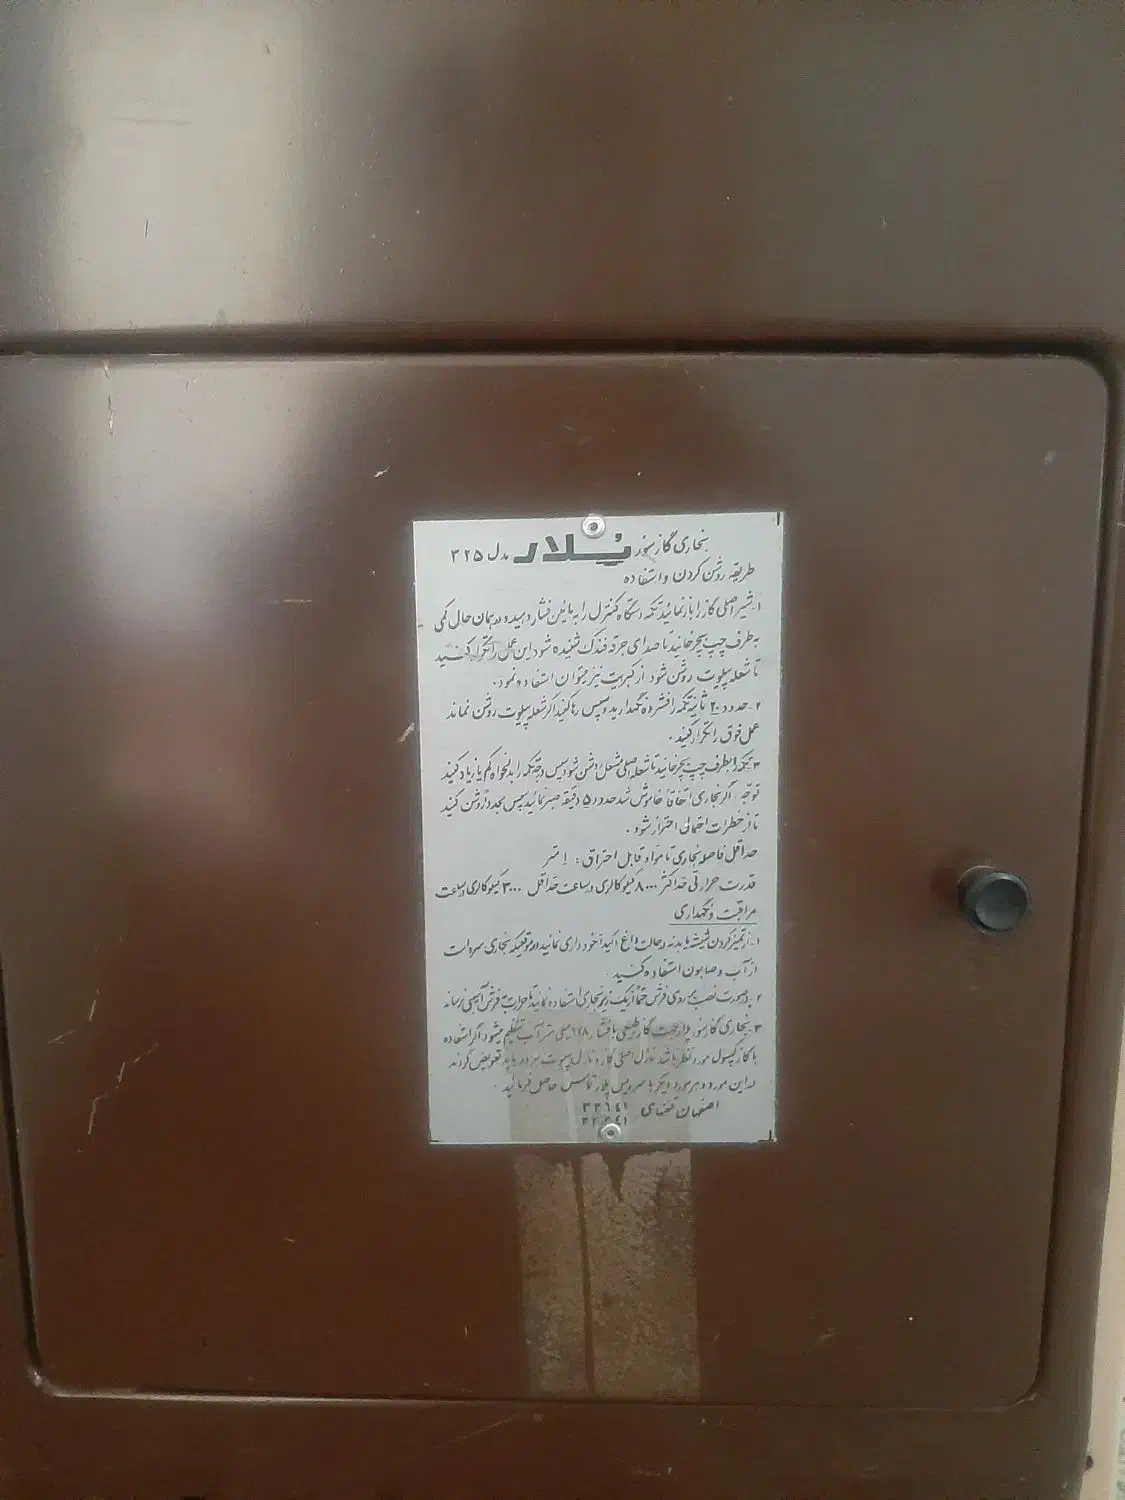 بخاری گازسوز پلار مدل ۳۲۵
طریقه روشن کردن و استفاده
۱- شیر اصلی گاز را باز نمائید تکمه دستگاه کنترل را به پائین فشار دهید و در همان حال کمی
به طرف چپ بچرخانید تا صدای جرقه فندک شنیده شود این عمل را تکرار کنید
تا شعله پیلوت روشن شود از کبریت نیز میتوان استفاده نمود.
۲- حدود ۲۰ ثانیه تکمه را فشرده نگهدارید و سپس رها کنید اگر شعله پیلوت روشن نماند
عمل فوق را تکرار کنید.
۳- تکمه را بطرف چپ بچرخانید تا شعله اصلی مشعل روشن شود سپس درجه تکمه را بدلخواه کم یا زیاد کنید
توجه: اگر بخاری اتفاقاً خاموش شد حدود ۵ دقیقه صبر نمائید سپس مجدداً روشن کنید
تا از خطرات احتمالی احتراز شود.
حداقل فاصله بخاری تا مواد قابل احتراق: ۱ متر
قدرت حرارتی حداکثر ۸۰۰۰ کیلو کالری در ساعت حداقل ۳۰۰۰ کیلو کالری در ساعت
مراقبت و نگهداری
۱- از تمیز کردن شیشه یا بدنه در حالت داغ اکیداً خود داری نمائید در موقعیکه بخاری سرد است
از آب و صابون استفاده کنید.
۲- در صورت نصب بر روی فرش حتماً از یک زیر بخاری استفاده کنید تا حرارت به فرش آسیبی نرساند
۳- بخاری گازسوز پلار جهت گاز طبیعی با فشار ۱۷۸ میلی متر آب تنظیم میشود اگر استفاده
با گاز کپسول مورد نظر باشد نازل اصلی گاز و نازل پیلوت هر دو باید تعویض گردند
در این مورد و هر مورد دیگر با سرویس پلار تماس حاصل فرمائید.
اصفهان تلفنهای ۳۳۶۴۱